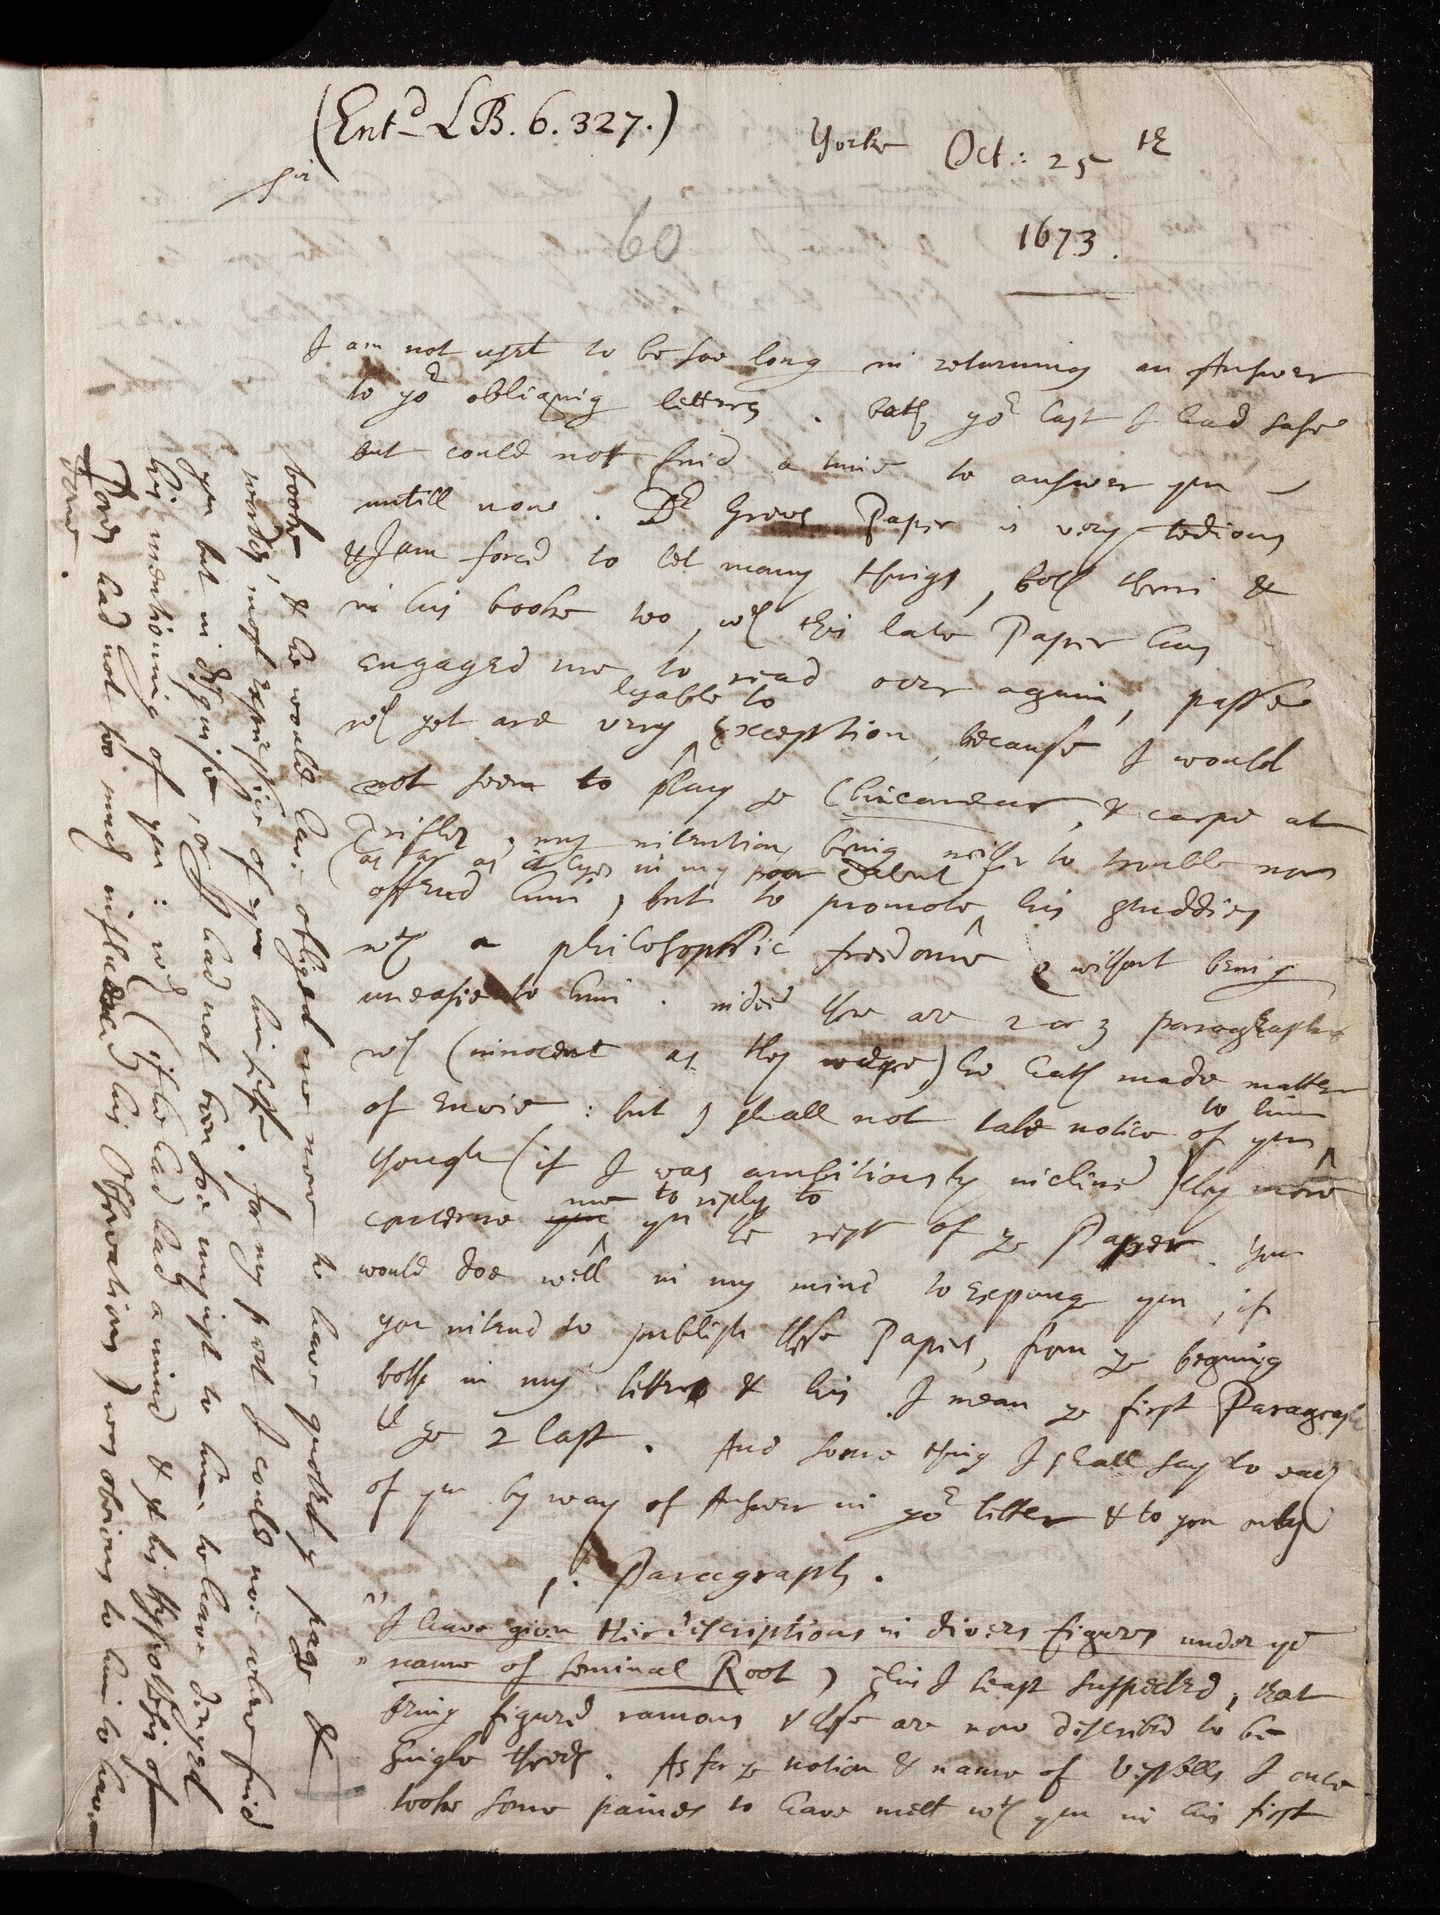 (Entd LB. 6. 327.)
Yorke Oct: 25th
Sir
60
1673.
I am not usd to be soe long in returning an Answer
to yor obliging letters. both yor last I had safe
but could not find a time to answer ym
untill now. Dr Grews Paper is very tedious
& I am forcd to let many things, both therein &
in his booke too, wch this late Paper has
engaged me to read over againe, passe
wch yet are very lyable to Exception, because I would
not seem to play ye Chicaneur, & carpe at
Trifles, my intention being neither to trouble nor
(as far as it lyes in my poor talent)
offend him, but to promote his studdies
wth a philosophic freedome, without being
uneasie to him. indeed there are 2 or 3 paragraphs
wch (innocent as they were) he hath made matter
of Envie: but I shall not take notice of ym to him
though (if I was ambitiously inclind) they more
concerne me to reply to yn ye rest of ye Paper. You
would doe well in my mind to expunge ym, if
you intend to publish these Papers, from ye begining
both in my letter & his I mean ye first Paragraph
& ye 2 last. And some thing I shall say to each
of ym by way of Answer in yor letter & to you only
1. Paragraph.
"I have given their descriptions in divers figures under ye
"name of seminal Root) this I least suspected, that
being figured ramous & these are now described to be
single threds. As for ye notion & name of Vessells I once
tooke some paines to have mett wth ym in his first
booke, & he would have obliged me now to have quoted ye page &
words, most expressive of ym himself. for my part I could not either find
ym but in disguise, or I had not been soe unjust to him to have denyed
his mentioning of ym: wch (if he had had a mind & yt his Hypothesis of
Pores had not too much influenced his Observations) was obvious to him to have
done.